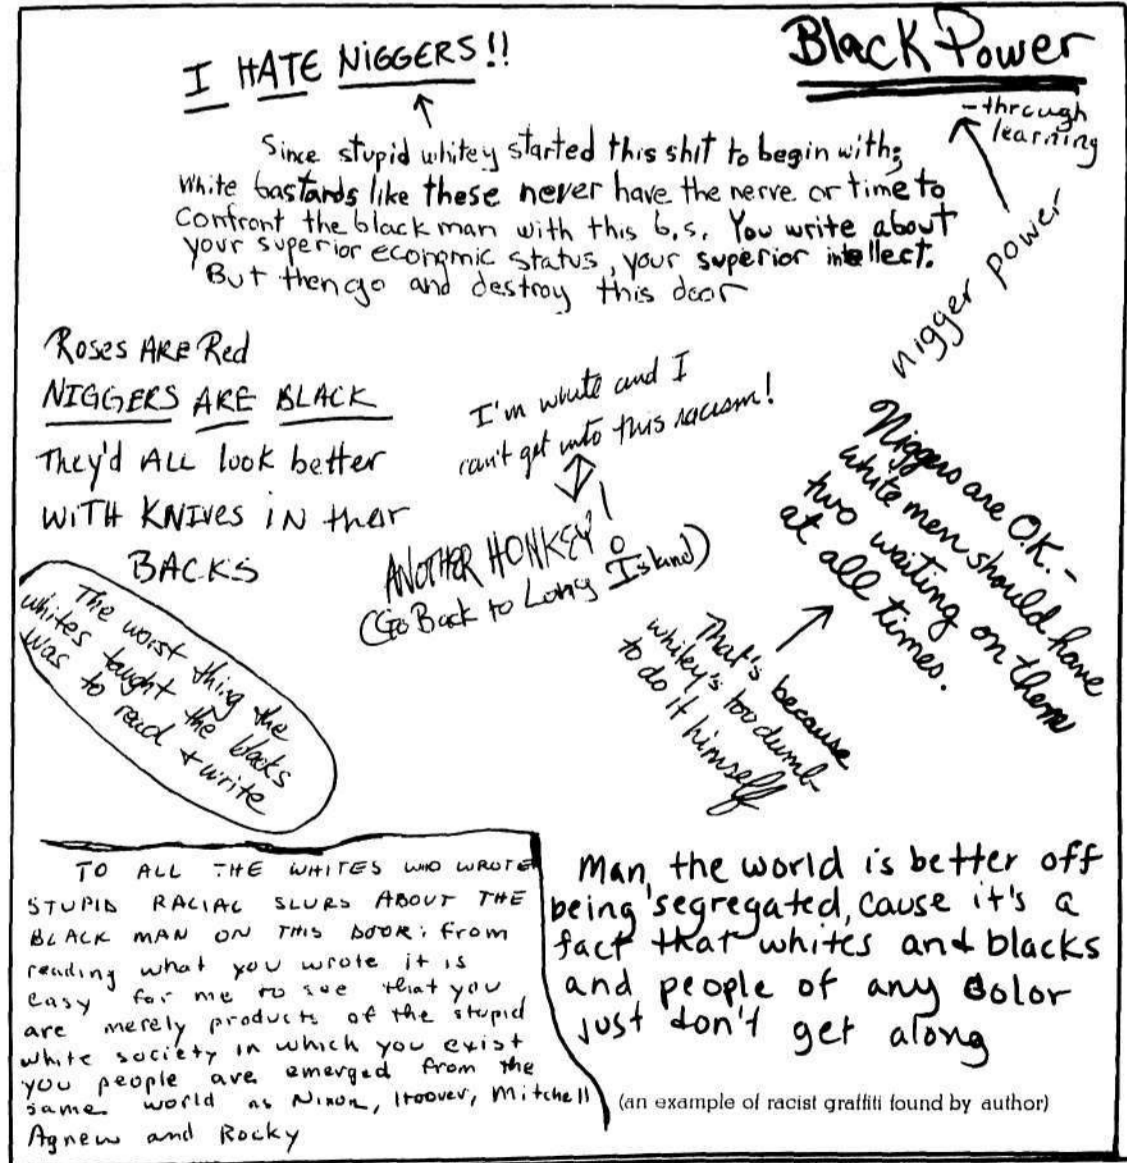 I HATE NIGGERS!!
Since stupid whitey started this shit to begin with;
White bastards like these never have the nerve or time to
confront the black man with this b.s. You write about
your superior economic status, your superior intellect.
But then go and destroy this door
Black Power
- through
learning
nigger power
Roses ARE Red
NIGGERS ARE BLACK
They'd ALL look better
WITH KNIVES iN their
BACKS
I'm white and I
can't get into this racism!
ANOTHER HONKEY!
(Go Back to Long Island)
Niggers are O.K. -
white men should have
two waiting on them
at all times.
That's because
whitey's too dumb
to do it himself
The worst thing the
whites taught the blacks
was to read + write
TO ALL THE WHITES WHO WROTE
STUPID RACIAL SLURS ABOUT THE
BLACK MAN ON THIS DOOR: from
reading what you wrote it is
easy for me to see that you
are merely products of the stupid
white society in which you exist
you people are emerged from the
same world as Nixon, Hoover, Mitchell
Agnew and Rocky
Man, the world is better off
being segregated, cause it's a
fact that whites and blacks
and people of any color
just don't get along
(an example of racist graffiti found by author)